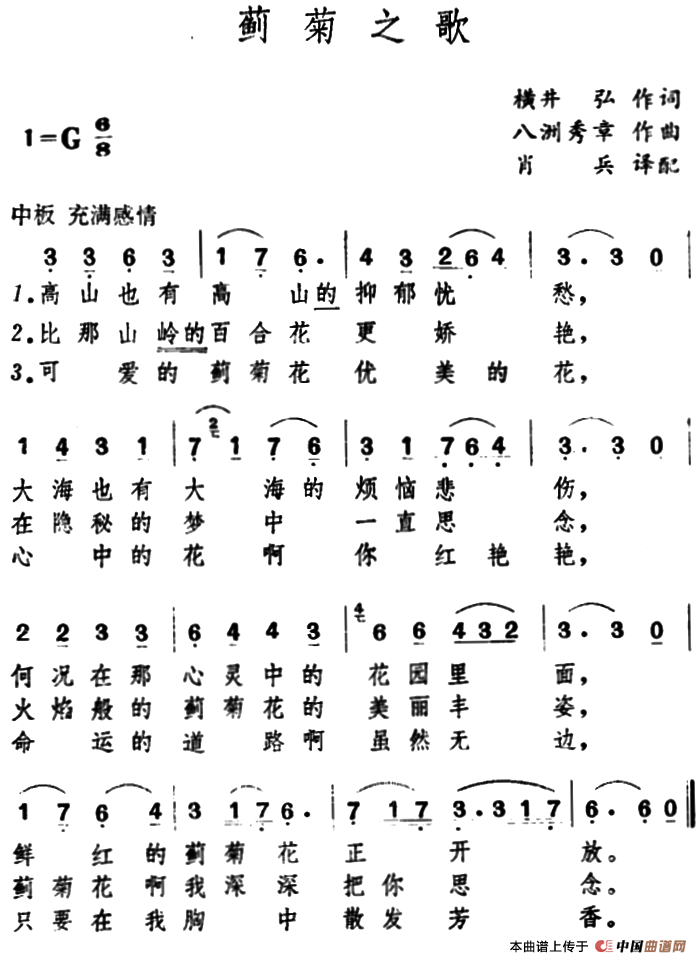 蓟菊之歌
横井 弘 作词
1=G 6/8
八洲秀章 作曲
肖 兵 译配
中板 充满感情
3 3 6 3 | 1 7 6. | 4 3 2 6 4 | 3. 3 0 |
1.高山也有高山的抑郁忧愁，
2.比那山岭的百合花更娇艳，
3.可爱的蓟菊花优美的花，
1 4 3 1 | 7 2 1 7 6 | 3 1 7 6 4 | 3. 3 0 |
大海也有大海的烦恼悲伤，
在隐秘的梦中一直思念，
心中的花啊你红艳艳，
2 2 3 3 | 6 4 4 3 | 4 6 6 4 3 2 | 3. 3 0 |
何况在那心灵中的花园里面，
火焰般的蓟菊花的美丽丰姿，
命运的道路啊虽然无边，
1 7 6 4 | 3 1 7 6. | 7 1 7 3. 3 1 7 | 6. 6 0 ||
鲜红的蓟菊花正开放。
蓟菊花啊我深深把你思念。
只要在我胸中散发芳香。
本曲谱上传于 中国曲谱网